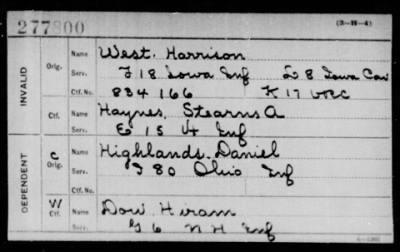 277800 (3-H-4)
INVALID
Orig. Name West, Harrison
Serv. F 18 Iowa Inf L 8 Iowa Cav
Ctf. No. 834166 K 17 VRC
Ctf. Name Haynes, Stearns A
Serv. E 15 Vt Inf
DEPENDENT
C Orig. Name Highlands, Daniel
Serv. I 80 Ohio Inf
Ctf. No.
W Ctf. Name Dow Hiram
Serv. G 6 N H Inf